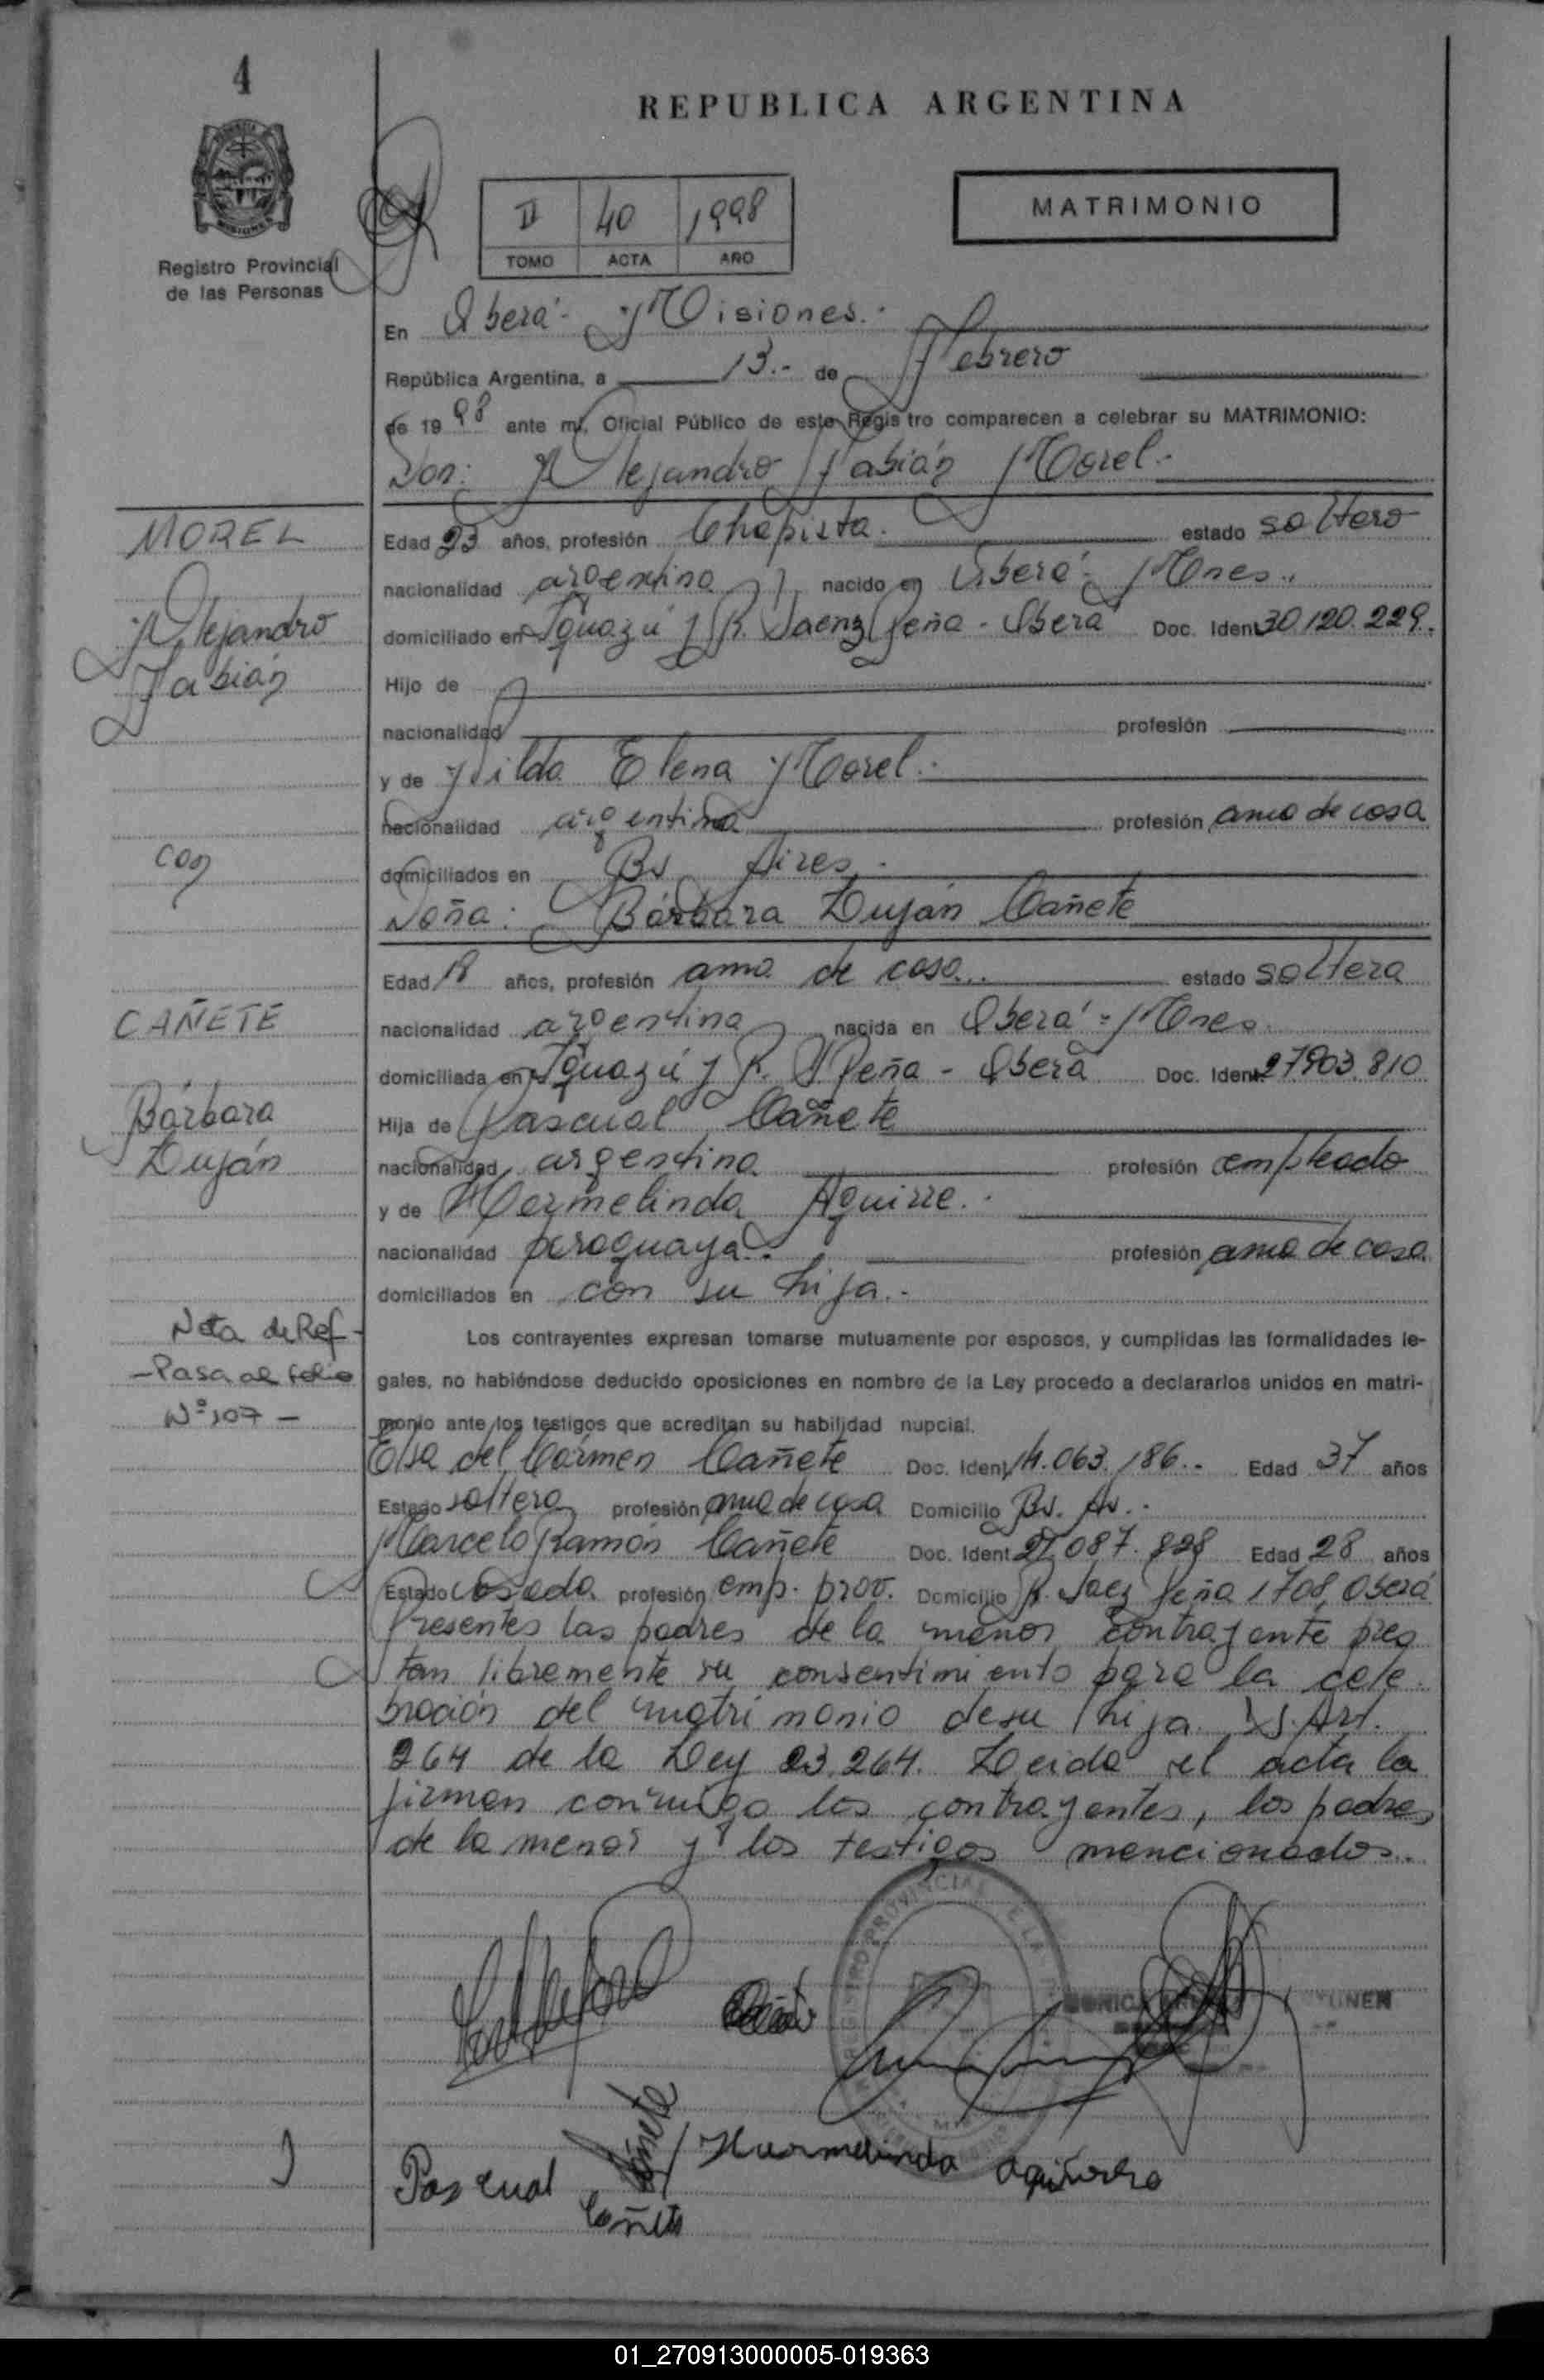 4
REPUBLICA ARGENTINA
Registro Provincial
de las Personas
II 40 1998
TOMO ACTA AÑO
MATRIMONIO
En Oberá - Misiones.-
República Argentina, a 13.- de Febrero
de 1998 ante mí, Oficial Público de este Registro comparecen a celebrar su MATRIMONIO:
Don: Alejandro Fabián Morel.-
MOREL
Alejandro
Fabián
Edad 23 años, profesión Chapista. estado soltero
nacionalidad argentina nacido en Oberá - Mnes.
domiciliado en Iguazú y R. Saenz Peña - Oberá Doc. Ident. 30.120.229.
Hijo de
nacionalidad profesión
y de Hilda Elena Morel.-
nacionalidad argentina profesión ama de casa
domiciliados en Bs Aires.-
con
Doña: Bárbara Luján Cañete
CAÑETE
Bárbara
Luján
Edad años, profesión ama de casa.. estado soltera
nacionalidad argentina nacida en Oberá - Mnes.
domiciliada en Iguazú y R. S. Peña - Oberá Doc. Ident. 27.903.810
Hija de Pascual Cañete
nacionalidad argentina profesión empleado
y de Hermelinda Aguirre.-
nacionalidad paraguaya.- profesión ama de casa
domiciliados en con su hija.-
Nota de Ref-
-Pasa al folio
Nº 107 -
Los contrayentes expresan tomarse mutuamente por esposos, y cumplidas las formalidades le-
gales, no habiéndose deducido oposiciones en nombre de la Ley procedo a declararlos unidos en matri-
monio ante los testigos que acreditan su habilidad nupcial.
Elsa del Cármen Cañete Doc. Ident. 14.063.186.- Edad 37 años
Estado soltera profesión ama de casa Domicilio Bs. As.-
Marcelo Ramón Cañete Doc. Ident. Edad 28 años
Estado casado profesión emp. prov. Domicilio R. Saez Peña 1708, Oberá
Presentes los padres de la menor contrayente pres
tan libremente su consentimiento para la cele
bración del matrimonio de su hija. Art.
264 de la Ley 23.264. Leida el acta la
firman conmigo los contrayentes, los padres
de la menor y los testigos mencionados.-
REGISTRO PROVINCIAL DE LA
Pascual Cañete
Hurmelinda
Cañete
01_270913000005-019363